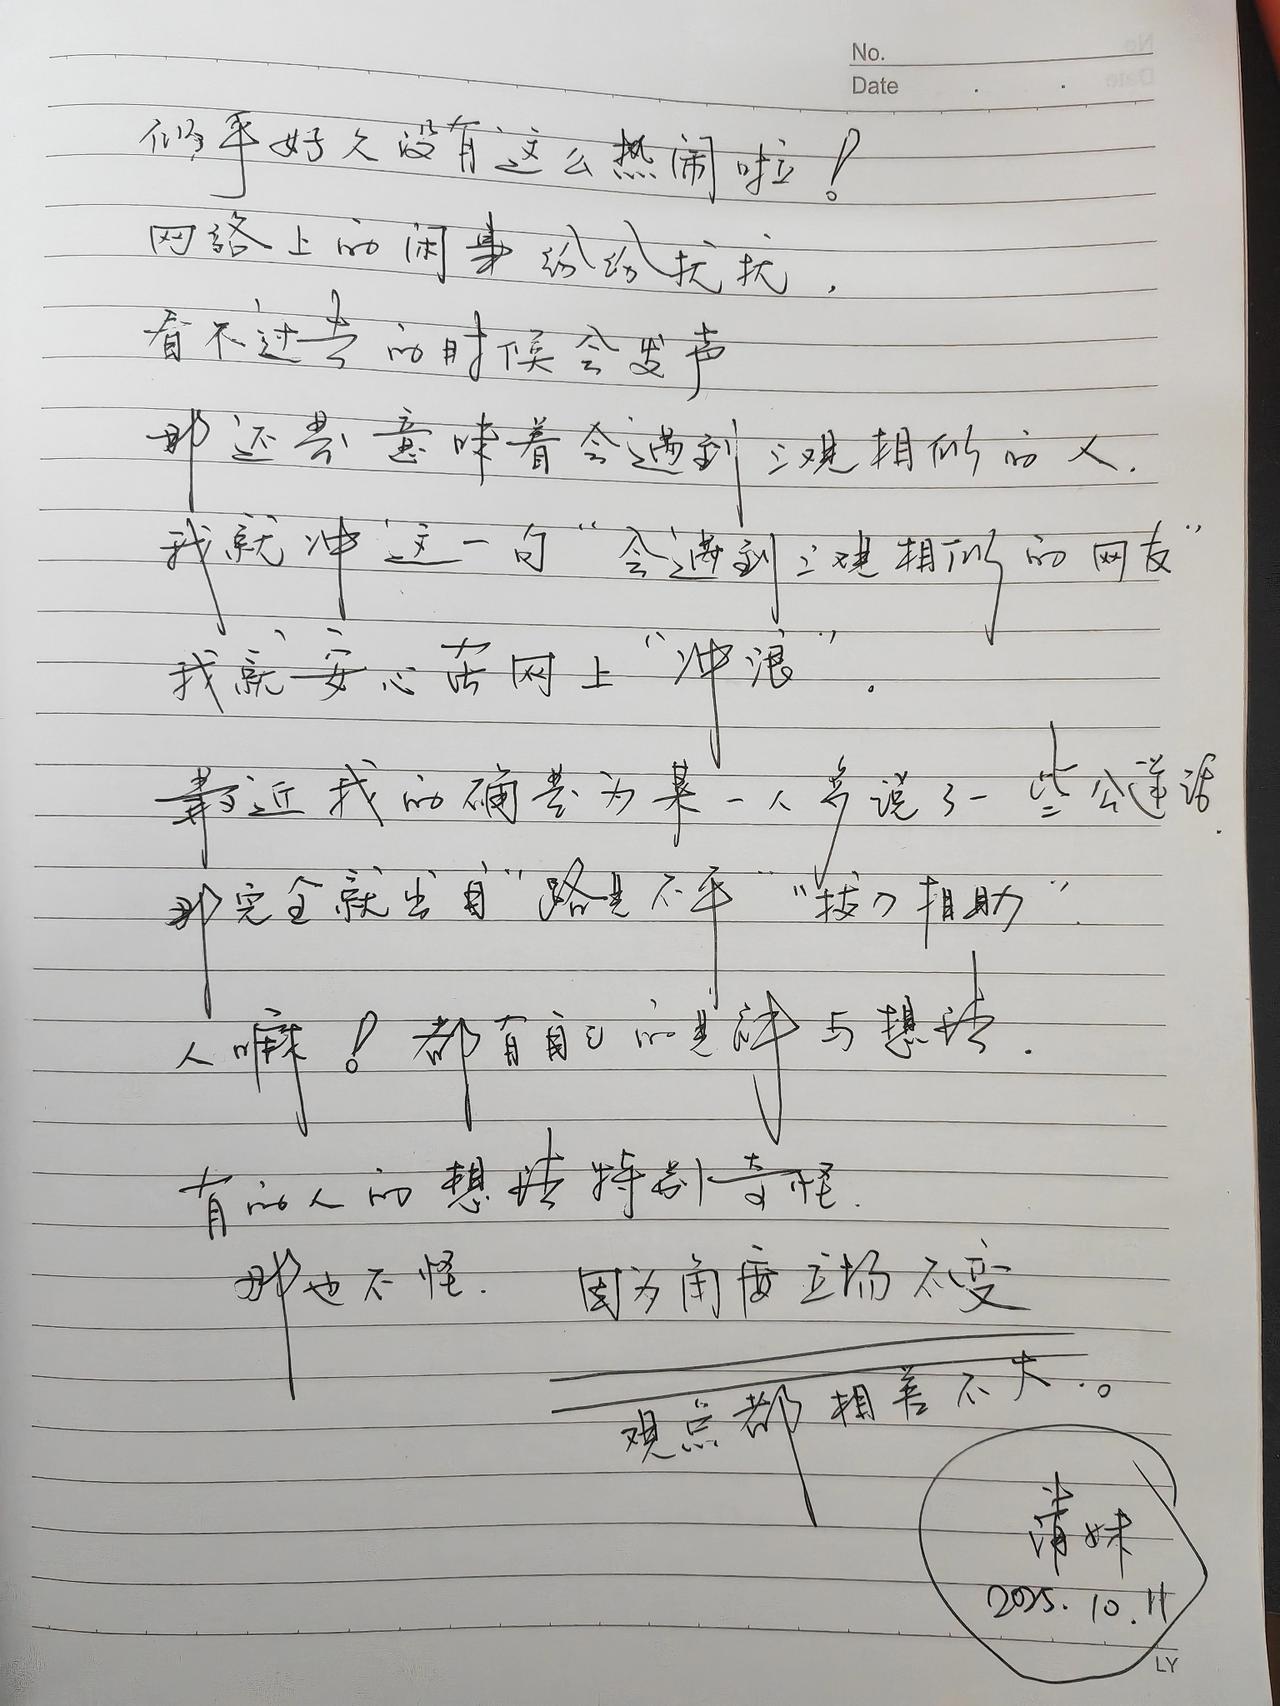 No.
Date
似乎好久没有这么热闹啦！
网络上的闲事纷纷扰扰，
看不过去的时候会发声
那还尝意味着会遇到三观相似的人.
我就冲这一句“会遇到三观相似的网友”
我就安心在网上“冲浪”.
最近我的确尝为某一人多说了一些公道话.
那完全就出自“路见不平”“拔刀相助”.
人嘛！都有自己的见评与想法.
有的人的想法特别奇怪.
那也不怪. 因为角度立场不变
观点都相差不大..。
妹
2025.10.11
LY